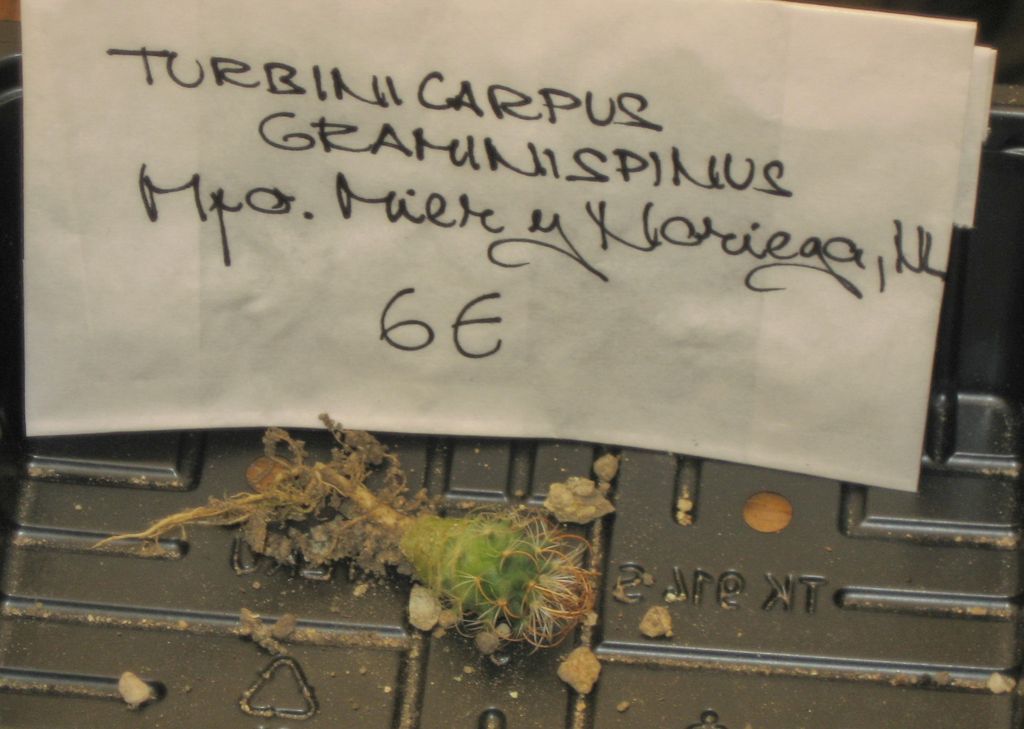 TURBINICARPUS
GRAMINISPINUS
Mpo. Mier y Noriega, NL
6€
TK 914